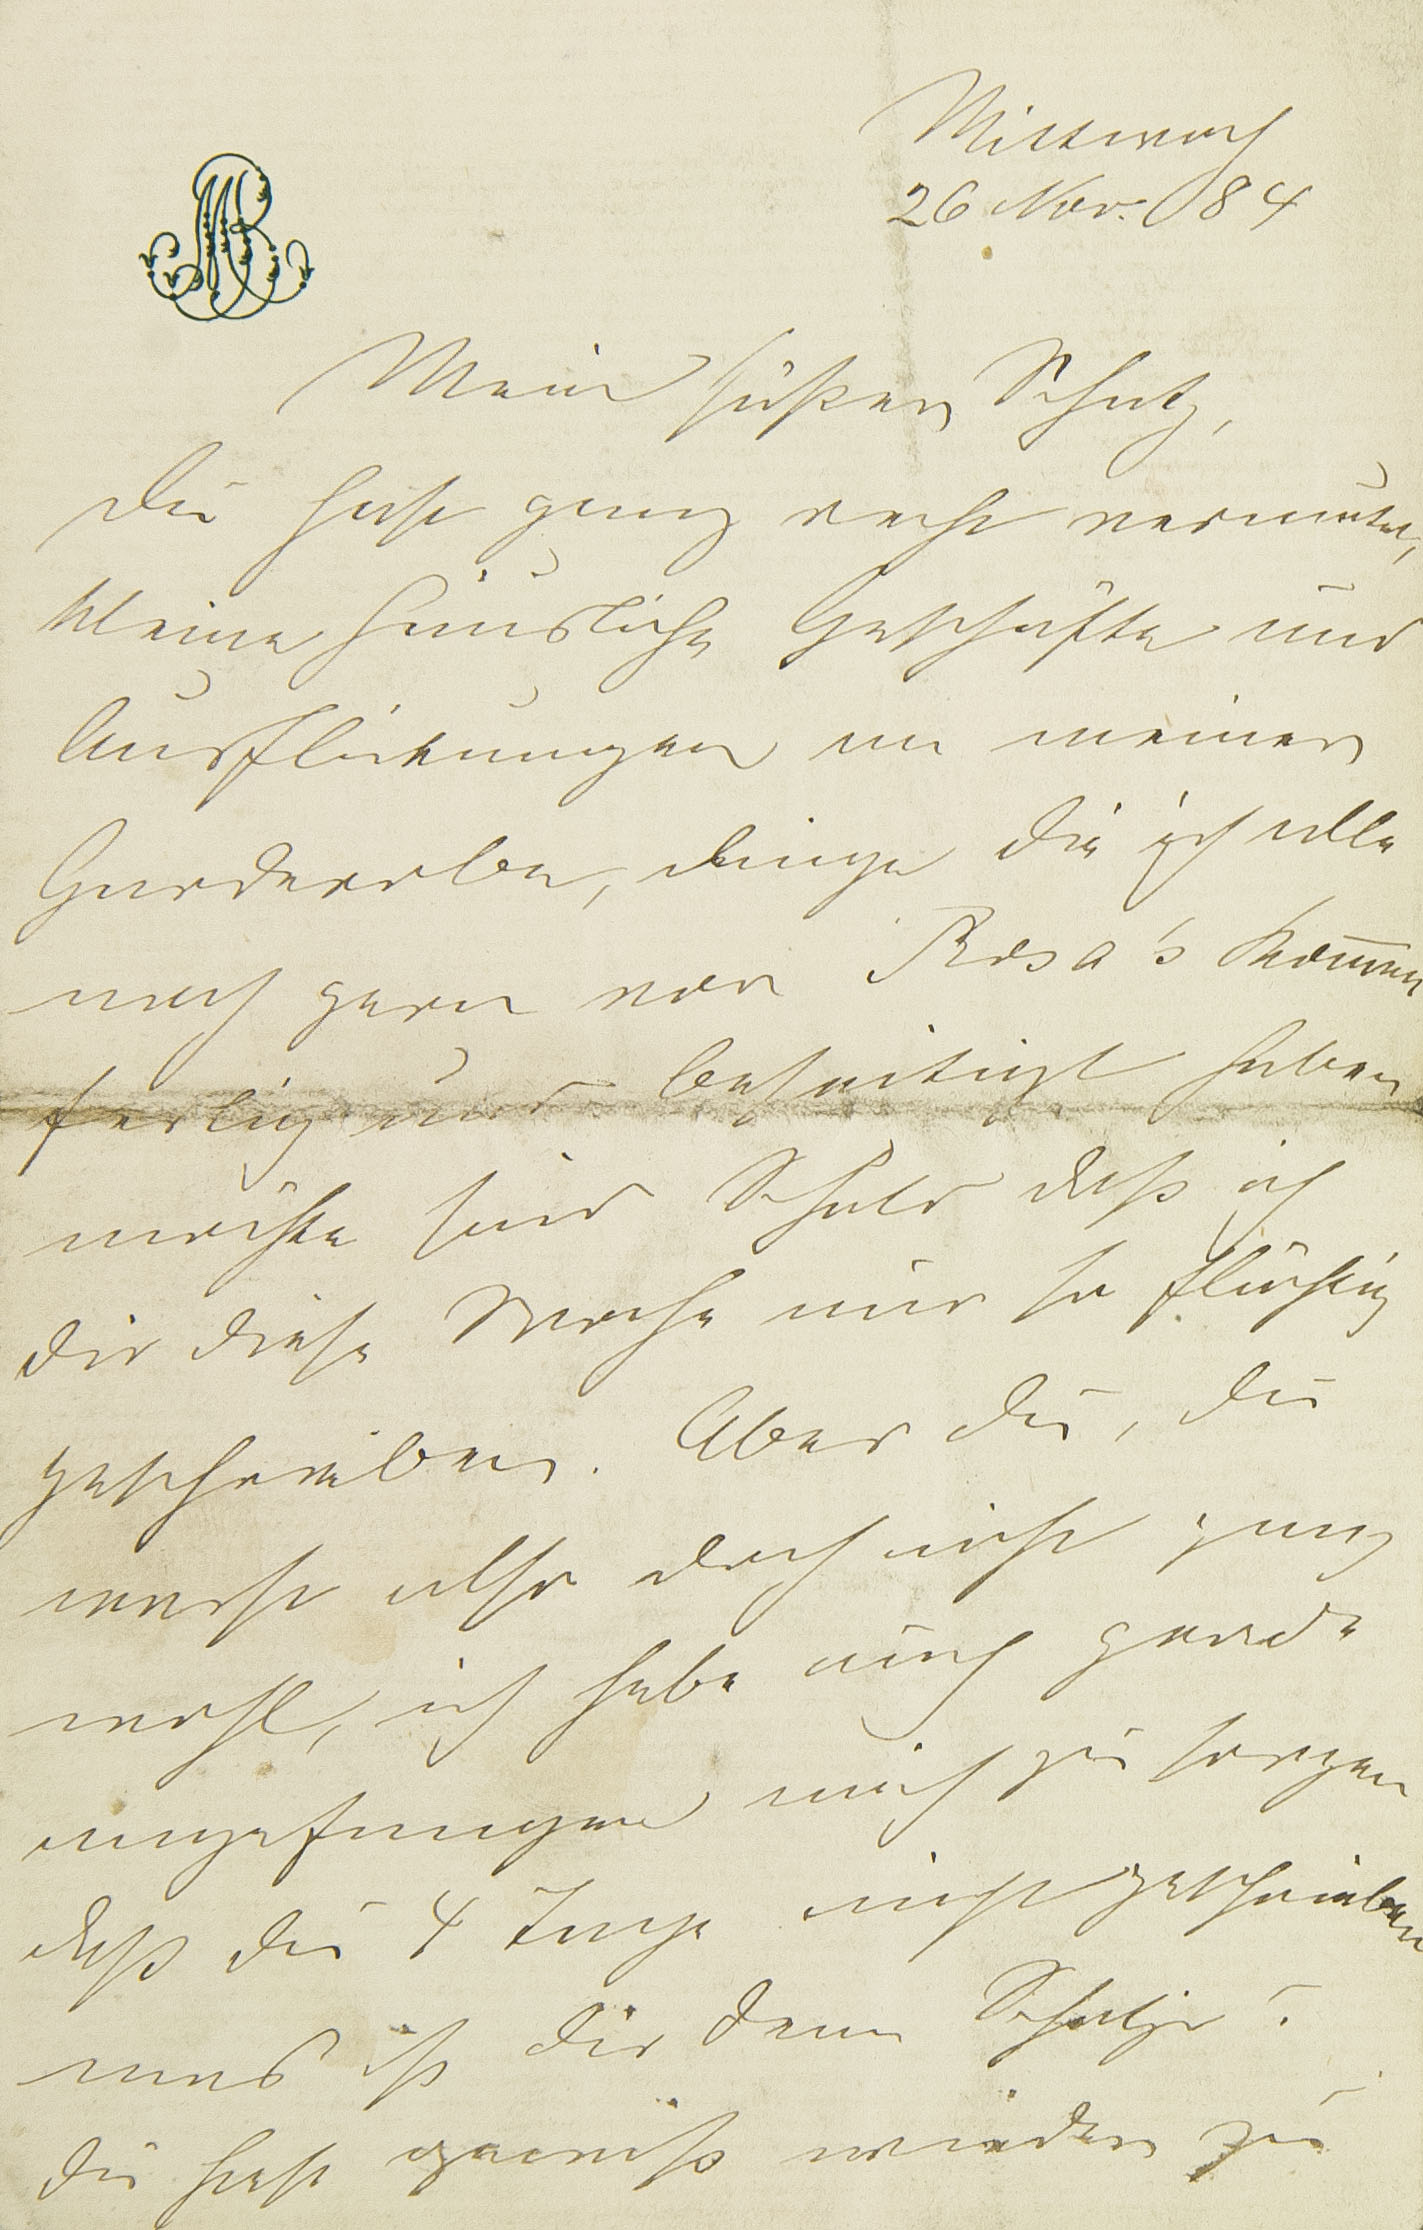 MB
Mittwoch
26 Nov. 84
Mein süßer Schatz,
Du hast ganz recht vermutet,
kleine häusliche Geschäfte und
Ausflickungen an meiner
Garderobe, Dinge die ich alle
noch gern vor Rosa's Kom̅en
fertig und beseitigt haben
möchte sind Schuld daß ich
dir diese Woche nur so flüchtig
geschrieben. Aber du, du
warst also doch nicht ganz
wohl, ich habe auch gerade
angefangen mich zu sorgen
daß du 4 Tage nicht geschrieben
was ist dir denn Schatzi?
du hast gewiß wieder zu